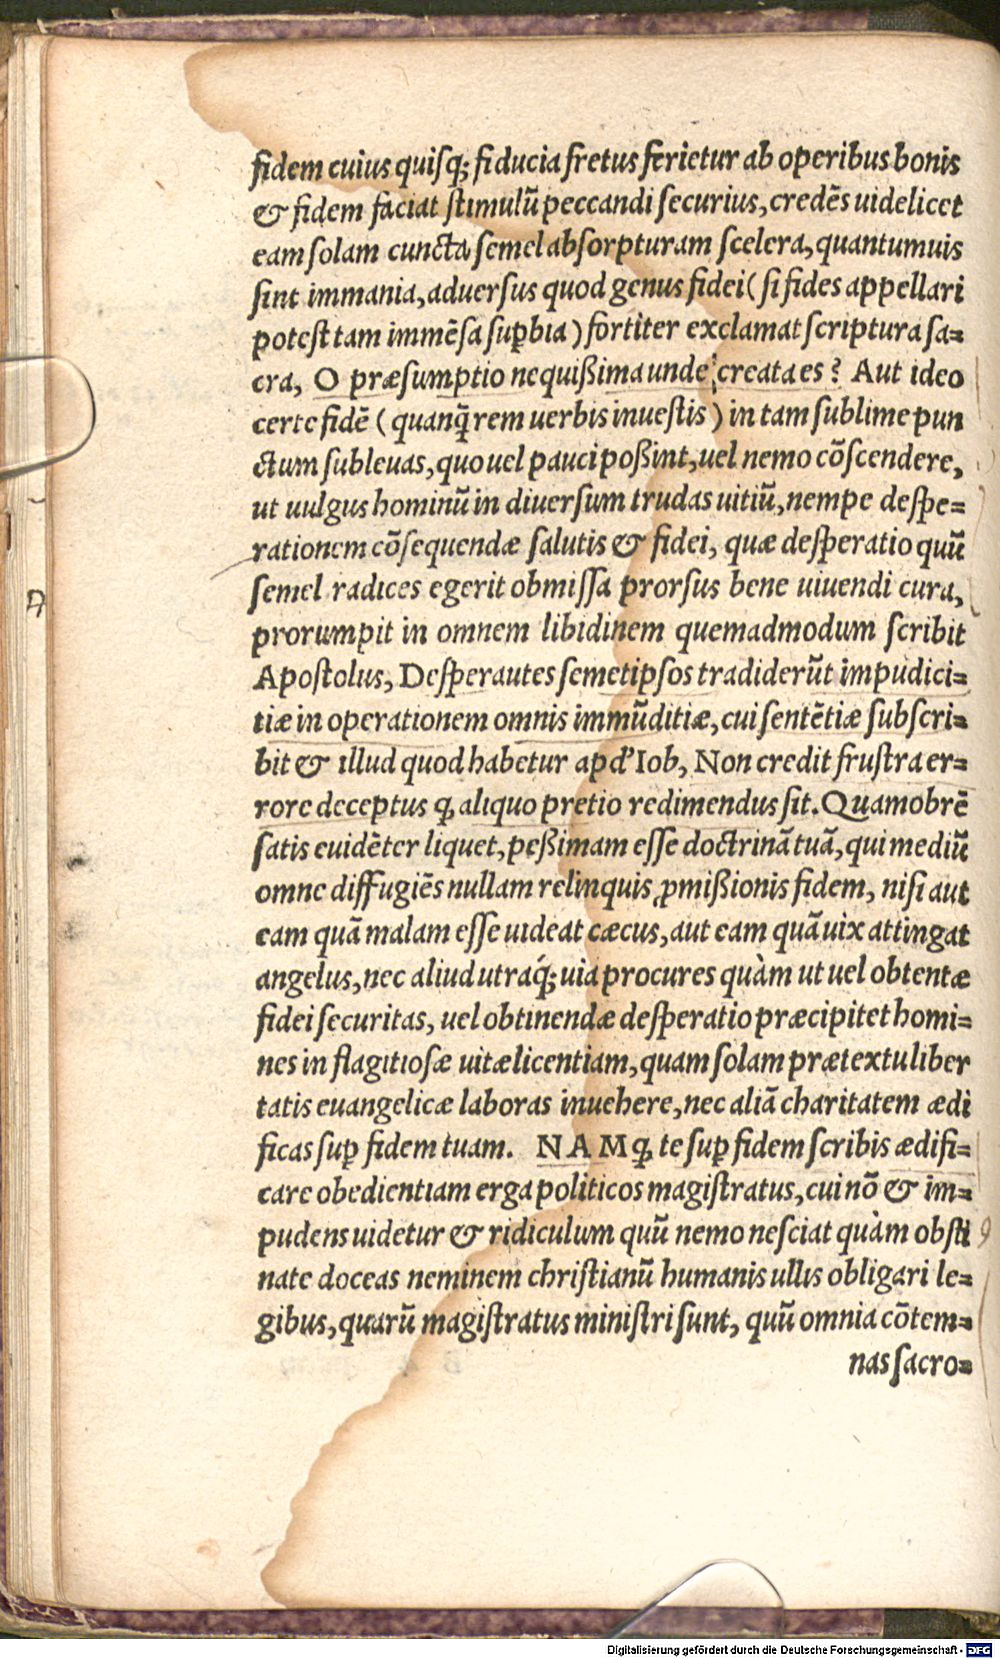 fidem cuius quisq; fiducia fretus ferietur ab operibus bonis
& fidem faciat stimulũ peccandi securius, credẽs uidelicet
eam solam cuncta semel absorpturam scelera, quantumuis
sint immania, aduersus quod genus fidei (si fides appellari
potest tam immẽsa sup̱bia) fortiter exclamat scriptura sa=
cra, O præsumptio nequißima unde creata es? Aut ideo
certe fidẽ (quanq̃ rem uerbis inuestis) in tam sublime pun
ctum subleuas, quo uel pauci poßint, uel nemo cõscendere,
ut uulgus hominũ in diuersum trudas uitiũ, nempe despe=
rationem cõsequendæ salutis & fidei, quæ desperatio quũ
semel radices egerit obmissa prorsus bene uiuendi cura,
prorumpit in omnem libidinem quemadmodum scribit
Apostolus, Desperautes semetipsos tradiderũt impudici=
tiæ in operationem omnis immũditiæ, cui sentẽtiæ subscri=
bit & illud quod habetur apd' Iob, Non credit frustra er=
rore deceptus ꝙ aliquo pretio redimendus sit. Quamobrẽ
satis euidẽter liquet, peßimam esse doctrinã tuã, qui mediũ
omne diffugiẽs nullam relinquis ꝓmißionis fidem, nisi aut
eam quã malam esse uideat cæcus, aut eam quã uix attingat
angelus, nec aliud utráq; uia procures quàm ut uel obtentæ
fidei securitas, uel obtinendæ desperatio præcipitet homi=
nes in flagitiosæ uitæ licentiam, quam solam prætextu liber
tatis euangelicæ laboras inuehere, nec aliã charitatem ædi
ficas sup̱ fidem tuam. NAMꝙ te sup̱ fidem scribis ædifi=
care obedientiam erga politicos magistratus, cui nõ & im=
pudens uidetur & ridiculum quũ nemo nesciat quàm obsti
nate doceas neminem christianũ humanis ullis obligari le=
gibus, quarũ magistratus ministri sunt, quũ omnia cõtem=
nas sacro=
Digitalisierung gefördert durch die Deutsche Forschungsgemeinschaft - DFG